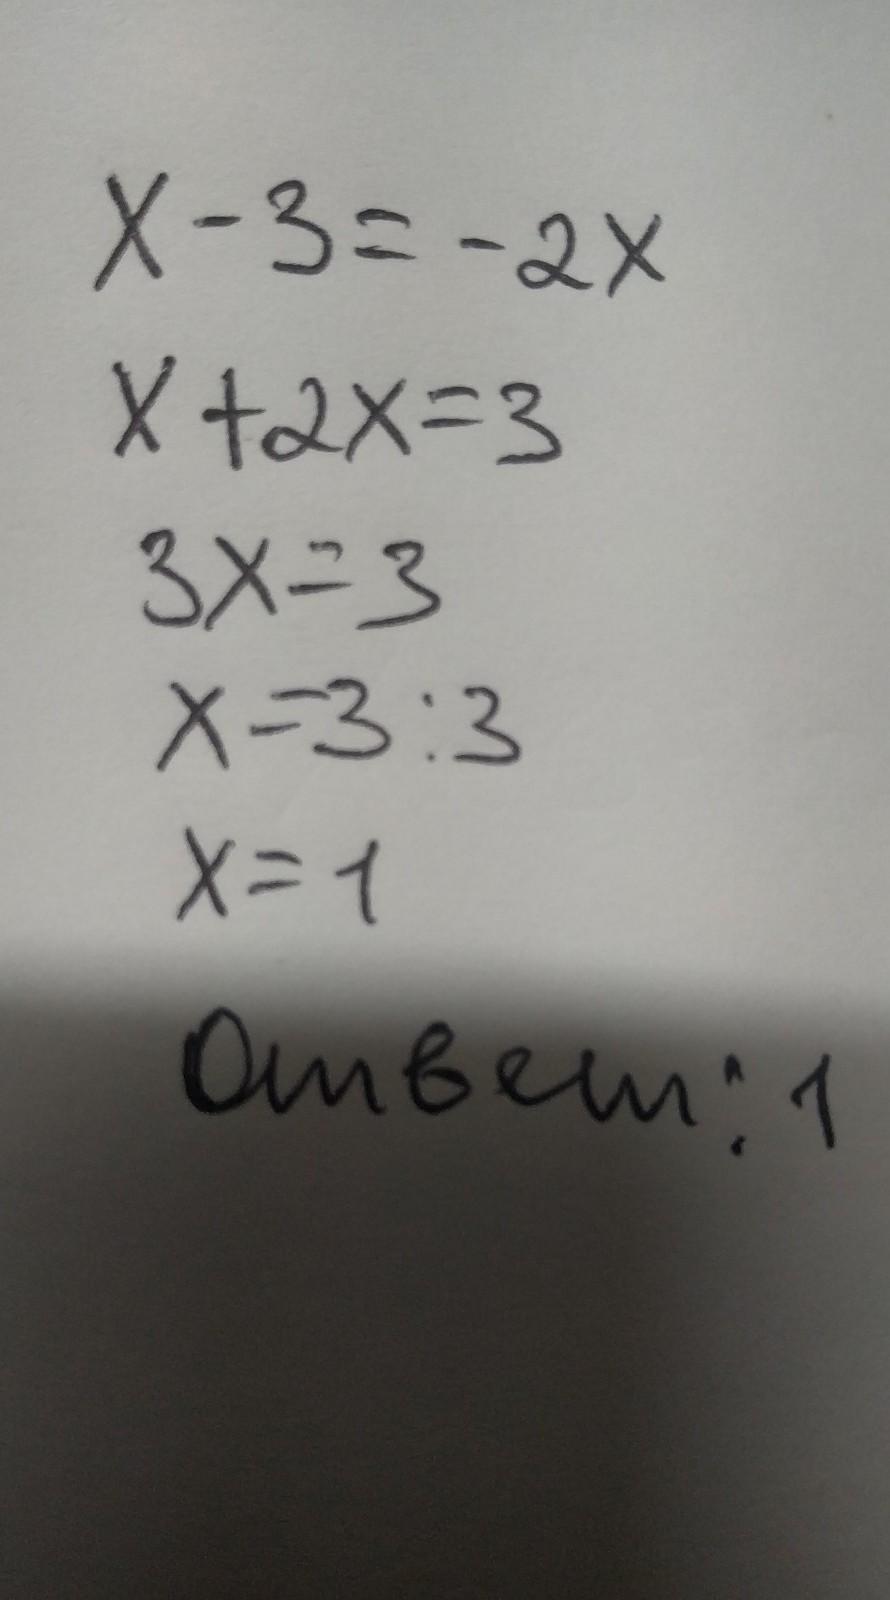 x - 3 = -2x
x + 2x = 3
3x = 3
x = 3 : 3
x = 1
Ответ: 1